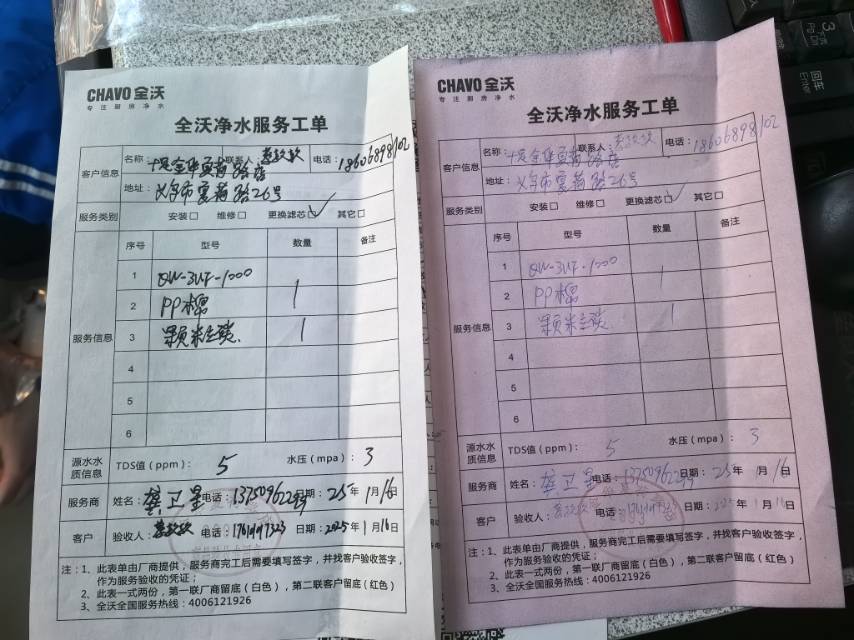 CHAVO 全沃
专注厨房净水
全沃净水服务工单
客户信息
名称：
联系人：
电话：18606898102
地址：义乌市 路26号
服务类别 安装□ 维修□ 更换滤芯☑ 其它□
服务信息
序号 型号 数量 备注
1 QW-3UF-1000
2 PP棉 1
3 颗粒炭 1
4
5
6
源水水质信息 TDS值（ppm）： 5 水压（mpa）： 3
服务商 姓名：龚卫星 电话： 日期：25年1月16日
客户 验收人： 电话： 日期：2025年1月16日
注：1、此表单由厂商提供，服务商完工后需要填写签字，并找客户验收签字，
作为服务验收的凭证；
2、此表一式两份，第一联厂商留底（白色），第二联客户留底（红色）
3、全沃全国服务热线：4006121926
CHAVO 全沃
专注厨房净水
全沃净水服务工单
客户信息
名称：
联系人：
电话：18606898102
地址：义乌市 路26号
服务类别 安装□ 维修□ 更换滤芯☑ 其它□
服务信息
序号 型号 数量 备注
1 QW-3UF-1000
2 PP棉 1
3 颗粒炭 1
4
5
6
源水水质信息 TDS值（ppm）： 5 水压（mpa）： 3
服务商 姓名：龚卫星 电话： 日期：25年1月16日
客户 验收人： 电话： 日期：2025年1月16日
注：1、此表单由厂商提供，服务商完工后需要填写签字，并找客户验收签字，
作为服务验收的凭证；
2、此表一式两份，第一联厂商留底（白色），第二联客户留底（红色）
3、全沃全国服务热线：4006121926
3
PgDn
回车
Enter